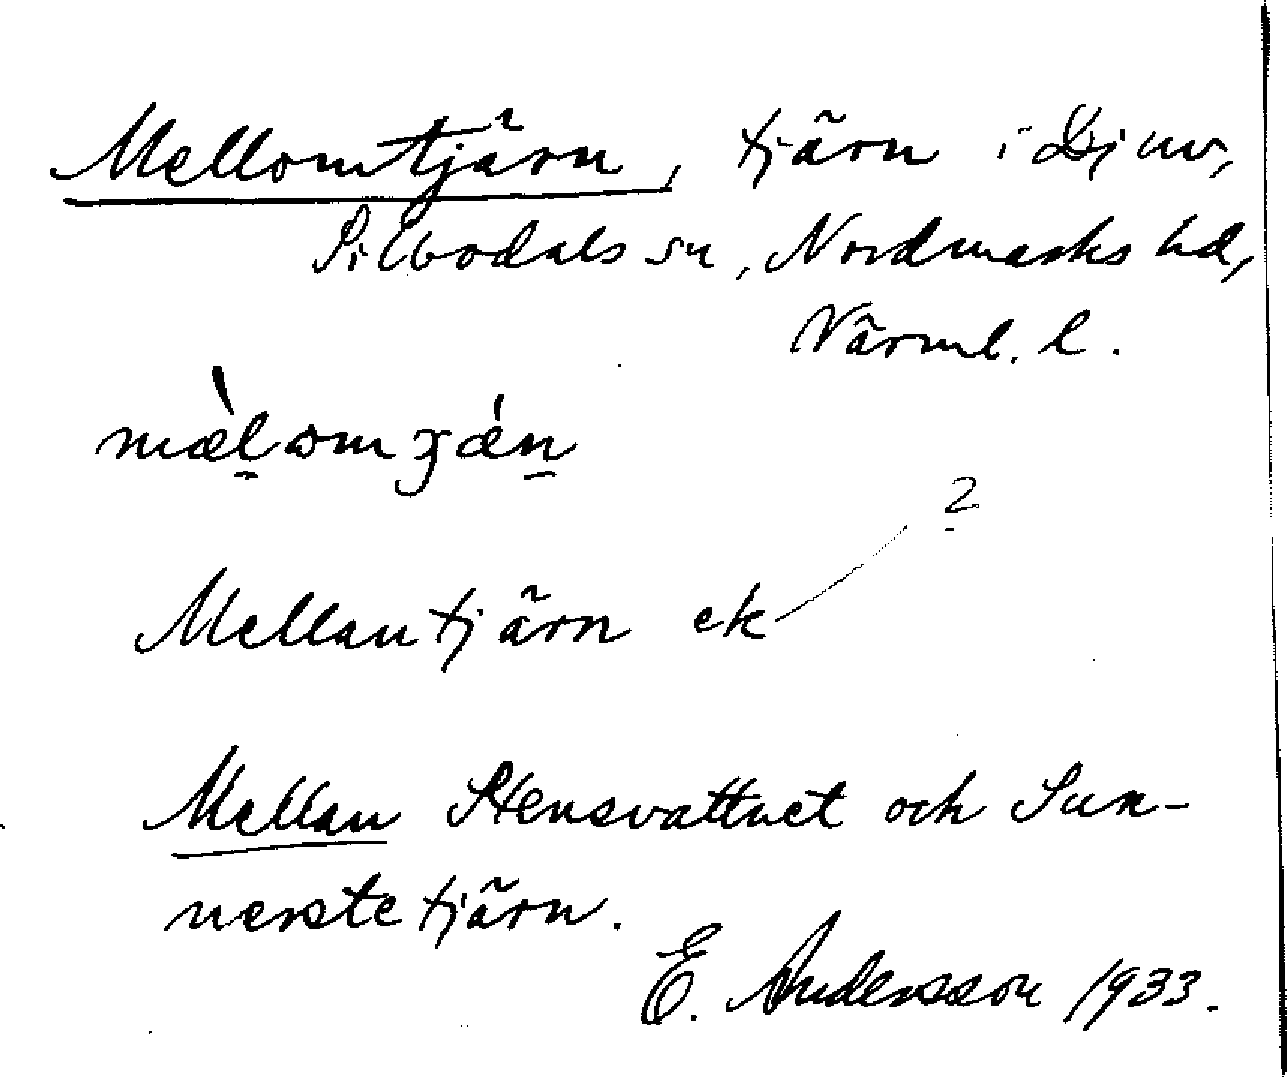 Mellomtjärn, tjärn i Djuv,
Silbodals sn, Nordmarks hd,
Värml. l.
Mellantjärn ek
2
Mellan Stensvattnet och Sun-
nerstetjärn.
E. Andersson 1933.